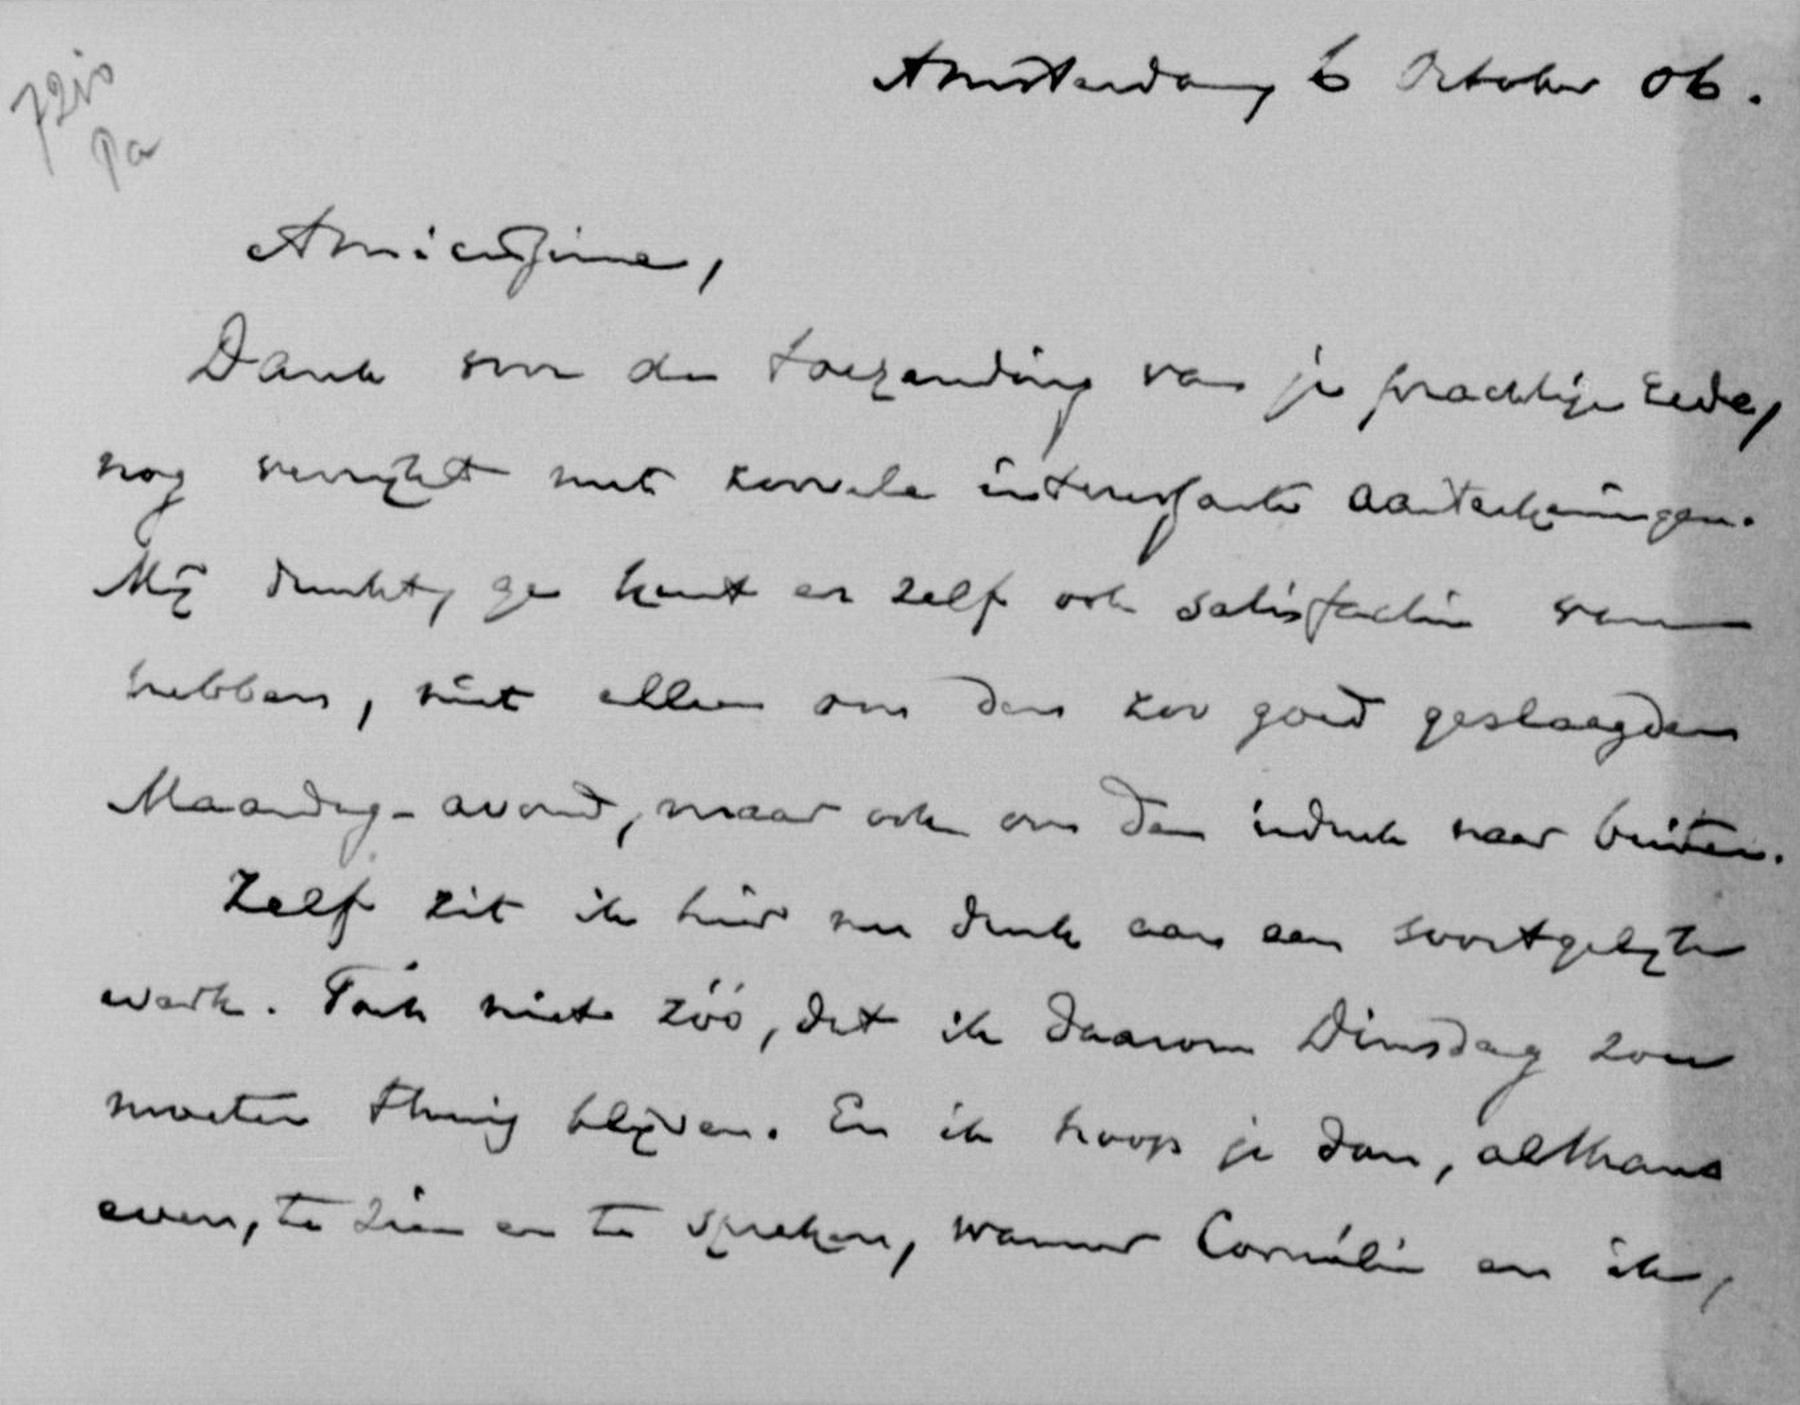 Amsterdam 6 October 06.
Amicissime,
Dank voor de toezending van je prachtige Rede,
nog verrijkt met zoovele interessante aanteekeningen.
Mij dunkt, ge kunt er zelf ook satisfactie van
hebben, niet alleen om den zoo goed geslaagden
Maandag-avond, maar ook om den indruk naar buiten.
Zelf zit ik hier nu druk aan een soortgelijk
werk. Toch niet zóó, dat ik daarom Dinsdag zou
moeten thuis blijven. En ik hoop je dan, althans
even, te zien en te spreken, wanneer Cornélie en ik,